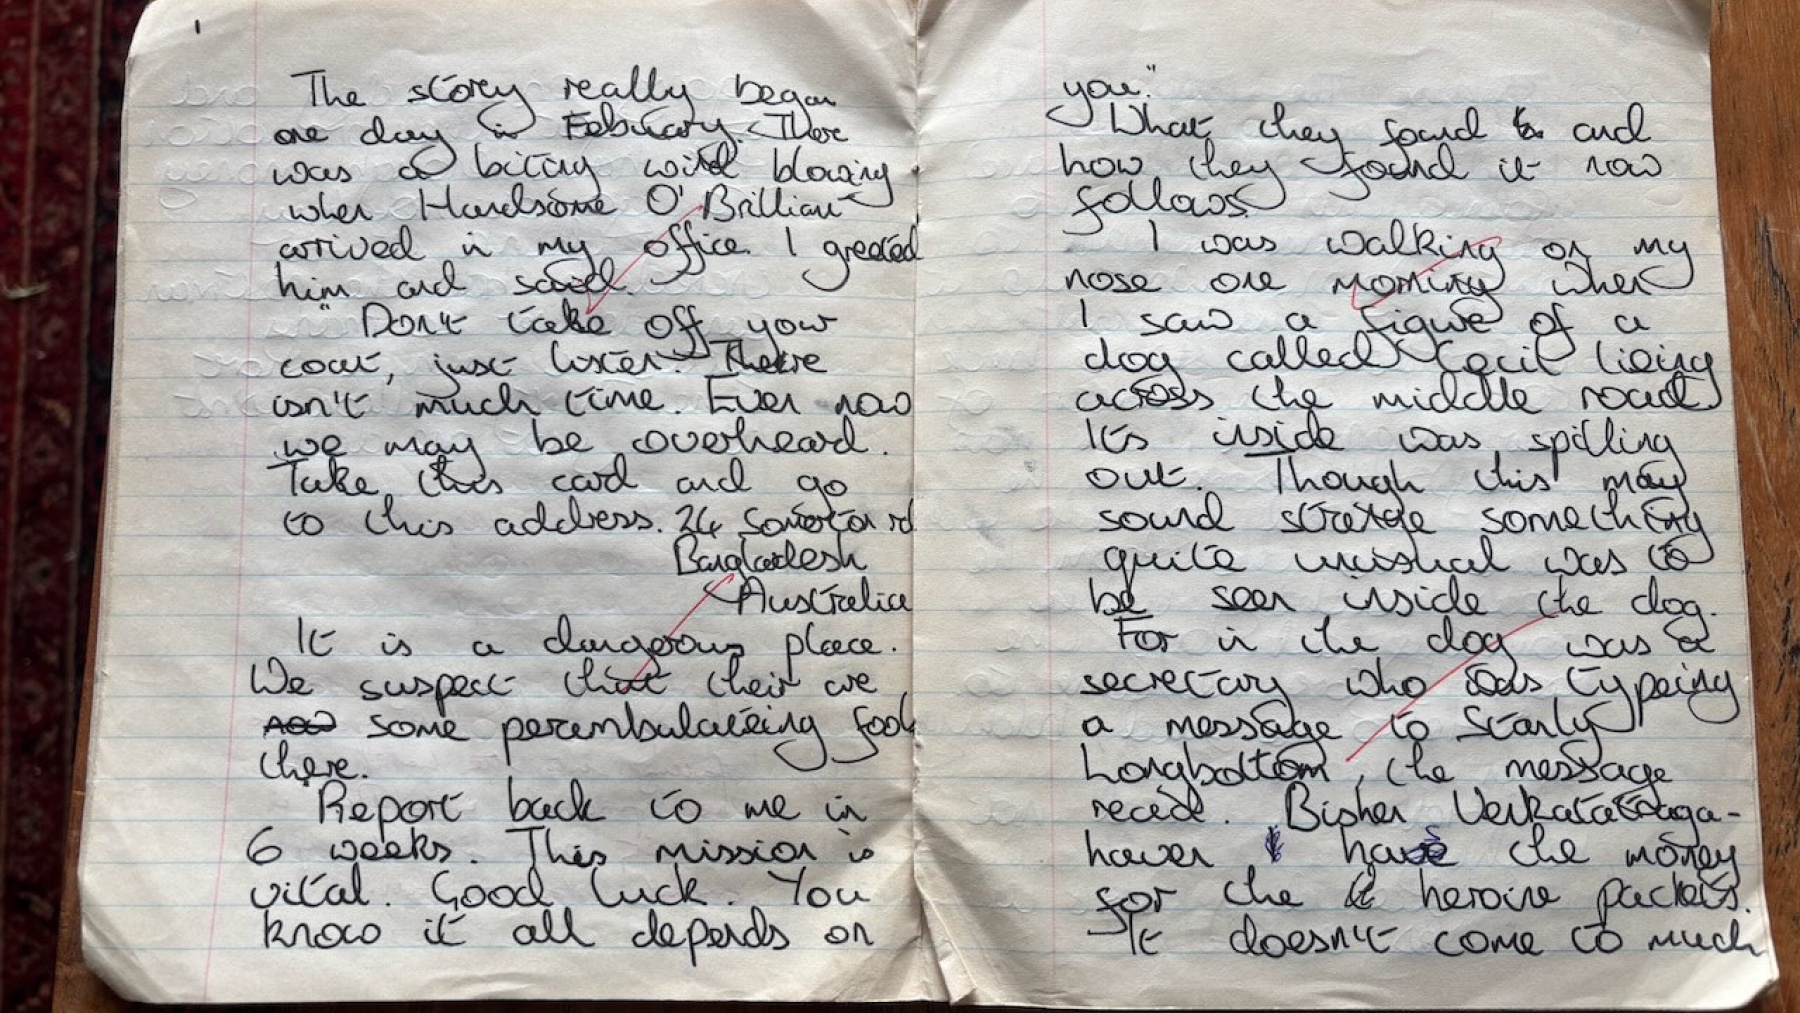 1
The storey really began
one day in Febuary. There
was a biting wind blowing
when Handsome O'Brillian
arrived in my office. I greeted
him and said.
"Don't take off your
coat, just listen. There
isn't much time. Even now
we may be overheard.
Take this card and go
to this address. 24 rd
Bangladesh
Australia
It is a dangerous place.
We suspect that their are
some perembulateing fools
there.
"Report back to me in
6 weeks. This mission is
vital. Good luck. You
know it all depends on
you."
What they found and
how they found it now
follows.
I was walking on my
nose one morning when
I saw a figure of a
dog called Cecil lieing
across the middle road
Its inside was spilling
out. Though this may
sound strange something
quite unusual was to
be seen inside the dog.
For in the dog was a
secretary who was typeing
a message to Stanly
Longbottom, the message
recede. Bisher
have the money
for the heroine packets.
It doesn't come to much